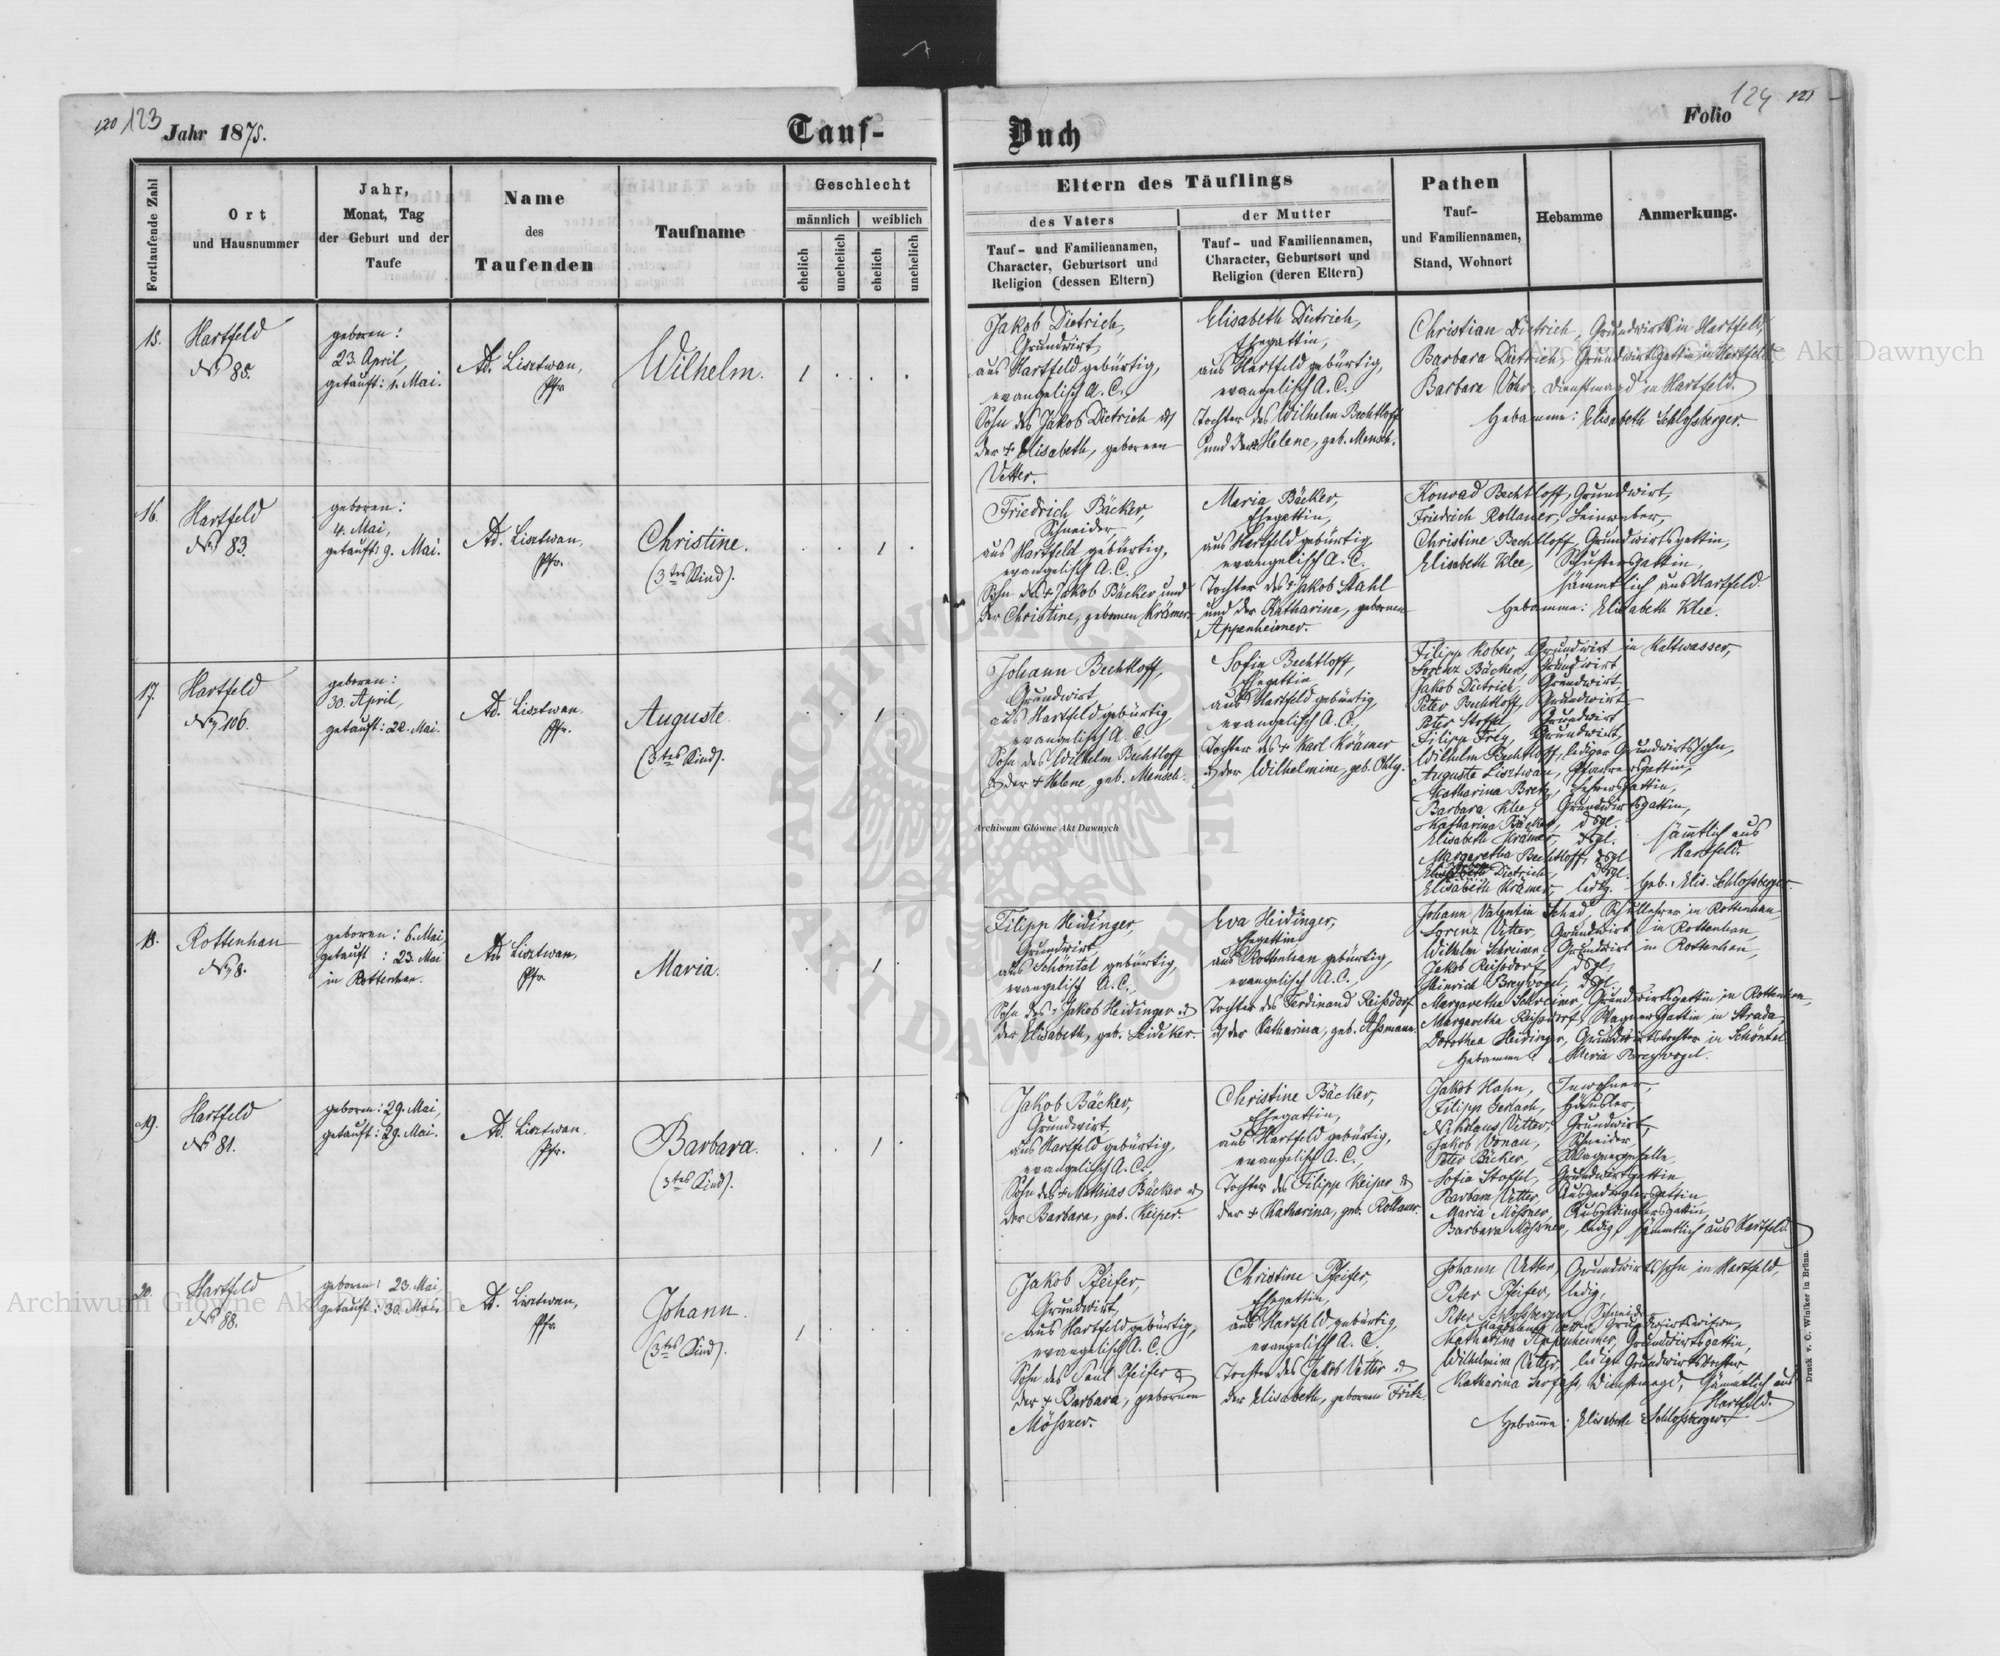 120 123
Jahr 1875.
Tauf-
Buch
Folio
124 121
Fortlaufende Zahl
Ort
und Hausnummer
Jahr,
Monat, Tag
der Geburt und der
Taufe
Name
des
Taufenden
Taufname
Geschlecht
männlich
weiblich
ehelich
unehelich
ehelich
unehelich
Eltern des Täuflings
des Vaters
Tauf- und Familiennamen,
Character, Geburtsort und
Religion (dessen Eltern)
der Mutter
Tauf- und Familiennamen,
Character, Geburtsort und
Religion (deren Eltern)
Pathen
Tauf-
und Familiennamen,
Stand, Wohnort
Hebamme
Anmerkung.
15.
Hartfeld
No 85.
geboren:
23. April,
getauft: 1. Mai.
Ad. Lisztwan,
Pfr.
Wilhelm.
1
Jakob Dietrich,
Grundwirt,
aus Hartfeld gebürtig,
evangelisch A. C.,
Sohn des Jakob Dietrich u
der + Elisabeth, geboreen
Vetter.
Elisabeth Dietrich,
Ehegattin,
aus Hartfeld gebürtig,
evangelisch A. C.,
Tochter des Wilhelm Bechtloff
und der + Helene, geb. Mensch.
Christian Dietrich, Grundwirt in Hartfeld,
Barbara Dietrich, Grundwirtsgattin in Hartfeld,
Barbara Vohr, Dienstmagd in Hartfeld.
Hebamme: Elisabeth Schloßberger.
16.
Hartfeld
No 83.
geboren:
4. Mai,
getauft: 9. Mai.
Ad. Lisztwan,
Pfr.
Christine.
(3tes Kind).
1
Friedrich Bäcker,
Schneider,
aus Hartfeld gebürtig,
evangelisch A. C.,
Sohn des + Jakob Bäcker und
der Christine, gebornen Krämer.
Maria Bäcker,
Ehegattin,
aus Hartfeld gebürtig,
evangelisch A. C.,
Tochter des + Jakob Stahl
und der Katharina, gebornen
Appenheimer.
Konrad Bechtloff, Grundwirt,
Friedrich Rollauer, Leinweber,
Christine Bechtloff, Grundwirtsgattin,
Elisabeth Klee, Schustersgattin,
sämmtlich aus Hartfeld.
Hebamme: Elisabeth Klee.
17.
Hartfeld
No 106.
geboren:
30. April,
getauft: 22. Mai.
Ad. Lisztwan.
Pfr.
Auguste.
(3tes Kind).
1
Johann Bechtloff,
Grundwirt,
aus Hartfeld gebürtig,
evangelisch A. C.,
Sohn des Wilhelm Bechtloff
u der + Helene, geb. Mensch.
Sofia Bechtloff,
Ehegattin,
aus Hartfeld gebürtig,
evangelisch A. C.,
Tochter des + Karl Krämer
u der Wilhelmine, geb. Ohlg.
Filipp Kober, Grundwirt in Kaltwasser,
Lorenz Bäcker, Grundwirt,
Jakob Dietrich, Grundwirt,
Peter Bechtloff, Grundwirt,
Peter Stoffel, Grundwirt,
Filipp Frey, Grundwirt,
Wilhelm Bechtloff, lediger Grundwirtssohn,
Auguste Lisztwan, Pfarrersgattin,
Katharina Bretz, Lehrersgattin,
Barbara Klee, Grundwirtsgattin,
Katharina Bäcker, dsgl.
Elisabeth Krämer, dsgl. sämtlich aus
Margaretha Bechtloff, dsgl. Hartfeld.
Dietrich, dsgl.
Elisabeth Krämer, ledig. Heb. Elis. Schloßberger
18.
Rottenhan
No 8.
geboren: 6. Mai,
getauft: 23. Mai
in Rottenhan.
Ad. Lisztwan,
Pfr.
Maria.
1
Filipp Heidinger,
Grundwirt,
aus Schöntal gebürtig,
evangelisch A. C.,
Sohn des + Jakob Heidinger u
der Elisabeth, geb. Leideker.
Eva Heidinger,
Ehegattin,
aus Rottenhan gebürtig,
evangelisch A. C.,
Tochter des Ferdinand Reißdorf
u der Katharina, geb. Aßmann.
Johann Valentin Schad, Schullehrer in Rottenhan,
Lorenz Vetter, Grundwirt in Rottenhan,
Wilhelm Schreiner, Grundwirt in Rottenhan,
Jakob Reißdorf, dsgl.
Heinrich Breyvogel, dsgl.
Margaretha Schreiner, Grundwirtsgattin in Rottenhan,
Margaretha Reißdorf, Wagnersgattin in Strada,
Dorothea Heidinger, Grundwirtstochter in Schöntal.
Hebamme: Maria Breyvogel.
19.
Hartfeld
No 81.
geboren: 29. Mai,
getauft: 29. Mai.
Ad. Lisztwan.
Pfr.
Barbara.
(3tes Kind).
1
Jakob Bäcker,
Grundwirt,
aus Hartfeld gebürtig,
evangelisch A. C.,
Sohn des + Mathias Bäcker u
der Barbara, geb. Keiper.
Christine Bäcker,
Ehegattin,
aus Hartfeld gebürtig,
evangelisch A. C.,
Tochter des Filipp Keiper u
der + Katharina, geb. Rollauer.
Jakob Hahn, Inwohner,
Filipp Gerlach, Häusler,
Nikolaus Vetter, Grundwirt,
Jakob Donau, Schneider,
Peter Bäcker, Wagnergeselle,
Sofia Stoffel, Grundwirtsgattin,
Barbara Vetter, Ausgedinglersgattin,
Maria Mößner, Ausgedinglersgattin,
Barbara Mößner, ledig, sämmtlich aus Hartfeld.
20.
Hartfeld
No 88.
geboren: 23. Mai,
getauft: 30. Mai.
Ad. Lisztwan,
Pfr.
Johann.
(3tes Kind).
1
Jakob Pfeifer,
Grundwirt,
aus Hartfeld gebürtig,
evangelisch A. C.,
Sohn des Paul Pfeifer u
der + Barbara, gebornen
Mößner.
Christine Pfeifer,
Ehegattin,
aus Hartfeld gebürtig,
evangelisch A. C.,
Tochter des Jakob Vetter u
der Elisabeth, gebornen Fritz.
Johann Vetter, Grundwirtssohn in Hartfeld,
Peter Pfeifer, ledig,
Peter Schloßberger, Schneider
Magdalena Grundwirtswitwe,
Katharina Appenheimer, Grundwirtsgattin,
Wilhelmine Vetter, ledige Grundwirtstochter
Katharina Serfaß, Dienstmagd, sämmtlich aus
Hartfeld.
Hebamme: Elisabeth Schloßberger.
Druck v. C. Winiker in Brünn.
Archiwum Główne Akt Dawnych
Archiwum Główne Akt Dawnych
Archiwum Główne Akt Dawnych
ARCHIWUM GŁÓWNE AKT DAWNYCH